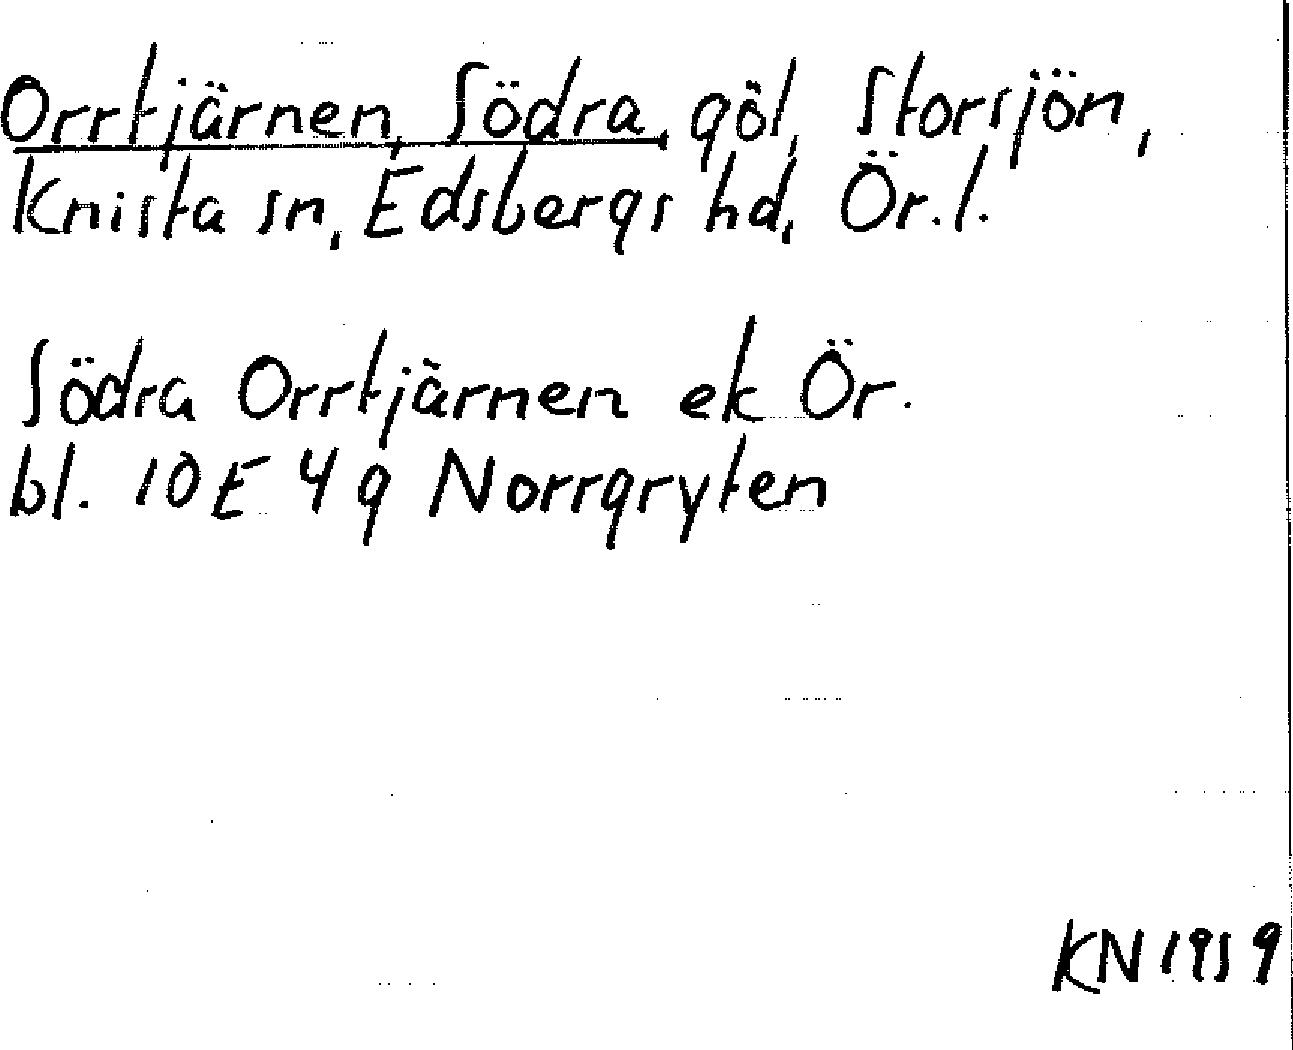 Orrtjärnen, Södra, göl, Storsjön,
Knista sn, Edsbergs hd, Ör.l.
Södra Orrtjärnen ek Ör.
bl. 10E 4g Norrgryten
KN 1959